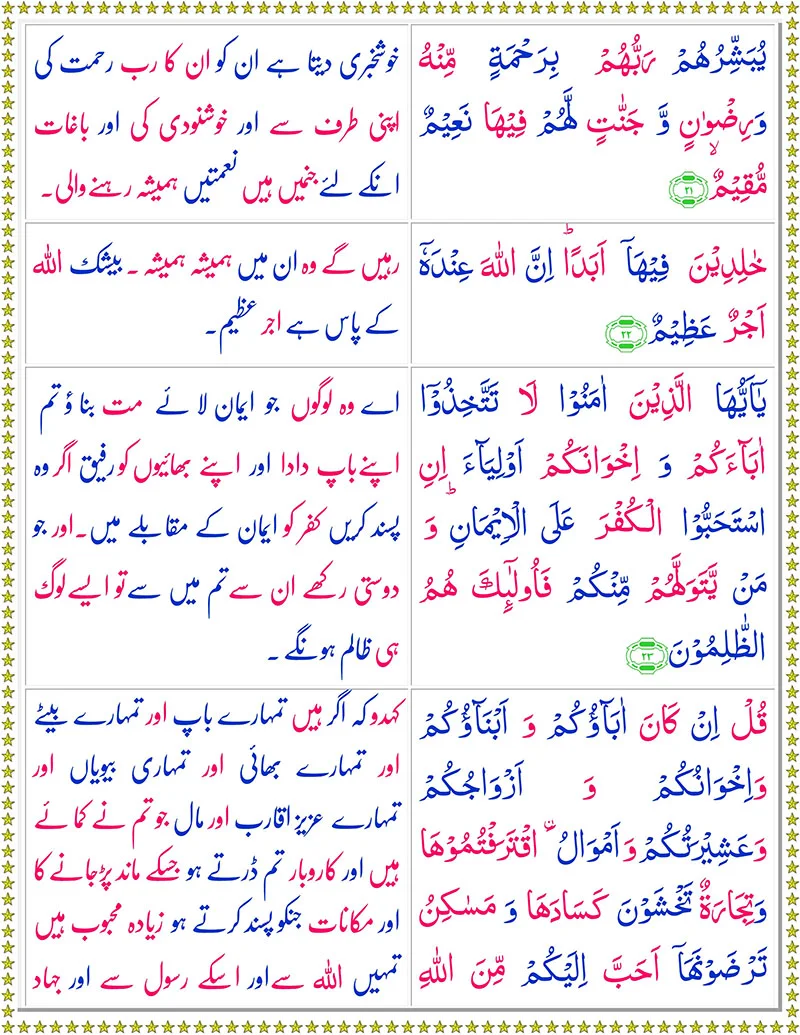 يُبَشِّرُهُمْ رَبُّهُمْ بِرَحْمَةٍ مِّنْهُ
وَرِضْوَانٍ وَّ جَنّٰتٍ لَّهُمْ فِيْهَا نَعِيْمٌ
مُّقِيْمٌ ۙ ۲۱
خوشخبری دیتا ہے ان کو ان کا رب رحمت کی
اپنی طرف سے اور خوشنودی کی اور باغات
انکے لئے جنمیں ہیں نعمتیں ہمیشہ رہنے والی۔
خٰلِدِيْنَ فِيْهَاۤ اَبَدًا ؕ اِنَّ اللّٰهَ عِنْدَهٗۤ
اَجْرٌ عَظِيْمٌ ۲۲
رہیں گے وہ ان میں ہمیشہ ہمیشہ ۔ بیشک اللہ
کے پاس ہے اجر عظیم۔
يٰۤاَيُّهَا الَّذِيْنَ اٰمَنُوْا لَا تَتَّخِذُوْۤا
اٰبَآءَكُمْ وَ اِخْوَانَكُمْ اَوْلِيَآءَ اِنِ
اسْتَحَبُّوا الْكُفْرَ عَلَى الْاِيْمَانِ ؕ وَ
مَنْ يَّتَوَلَّهُمْ مِّنْكُمْ فَاُولٰٓئِكَ هُمُ
الظّٰلِمُوْنَ ۲۳
اے وہ لوگوں جو ایمان لائے مت بناؤ تم
اپنے باپ دادا اور اپنے بھائیوں کو رفیق اگر وہ
پسند کریں کفر کو ایمان کے مقابلے میں۔ اور جو
دوستی رکھے ان سے تم میں سے تو ایسے لوگ
ہی ظالم ہونگے ۔
قُلْ اِنْ كَانَ اٰبَآؤُكُمْ وَ اَبْنَآؤُكُمْ
وَاِخْوَانُكُمْ وَ اَزْوَاجُكُمْ
وَعَشِيْرَتُكُمْ وَ اَمْوَالُ ۨ اقْتَرَفْتُمُوْهَا
وَتِجَارَةٌ تَخْشَوْنَ كَسَادَهَا وَ مَسٰكِنُ
تَرْضَوْنَهَاۤ اَحَبَّ اِلَيْكُمْ مِّنَ اللّٰهِ
کہدو کہ اگر ہیں تمہارے باپ اور تمہارے بیٹے
اور تمہارے بھائی اور تمہاری بیویاں اور
تمہارے عزیز اقارب اور مال جو تم نے کمائے
ہیں اور کاروبار تم ڈرتے ہو جسکے ماند پڑجانے کا
اور مکانات جنکو پسند کرتے ہو زیادہ محبوب ہیں
تمہیں اللہ سے اور اسکے رسول سے اور جہاد